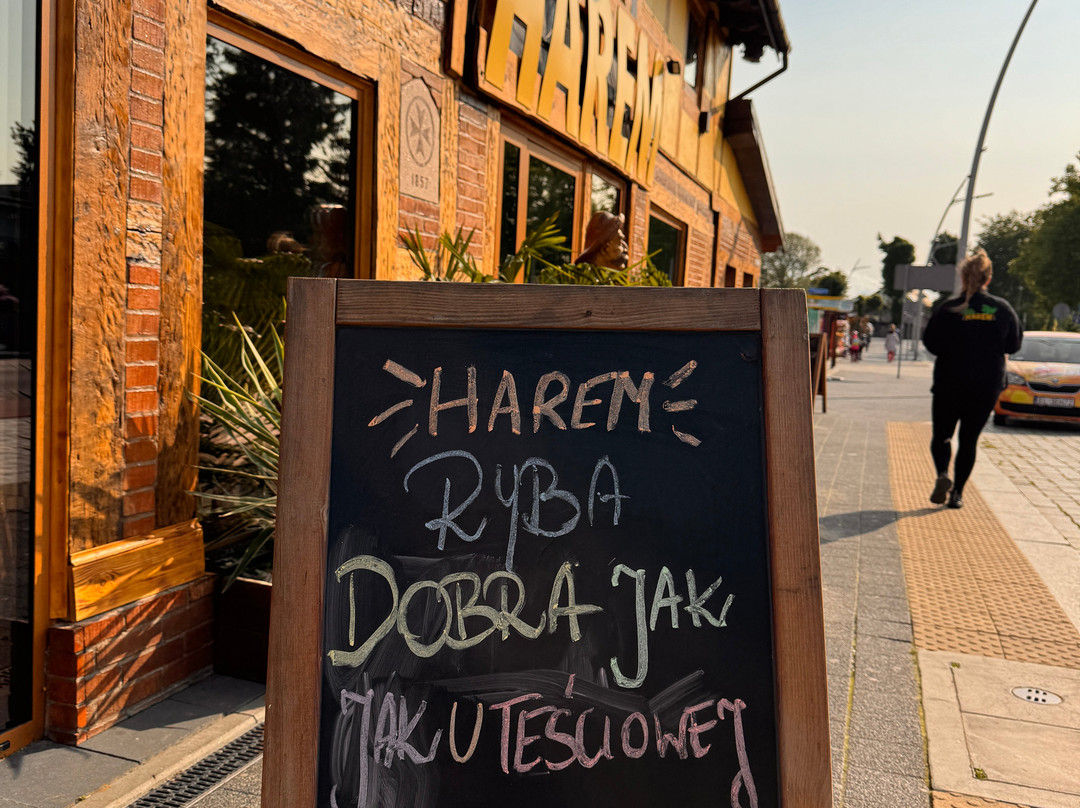 HAREM
1857
HAREM
HAREM
RYBA
DOBRA JAK
JAK U TEŚCIOWEJ